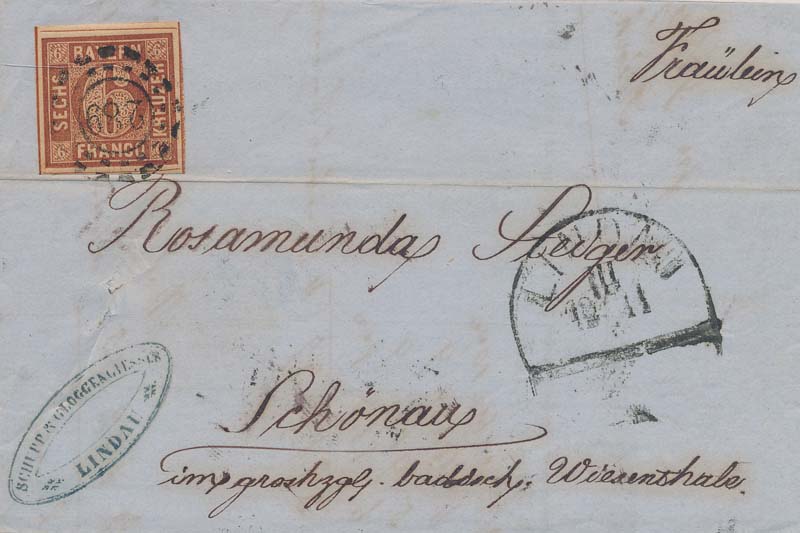 BAYERN
SECHS
6
KREUZER
FRANCO
Fräulein
Rosamunda Steiger
LINDAU
III
12 11
SCHUPP & GLOGGENGIESSER
LINDAU
Schönau
im groshzgl. baddsch. Wiesenthale.